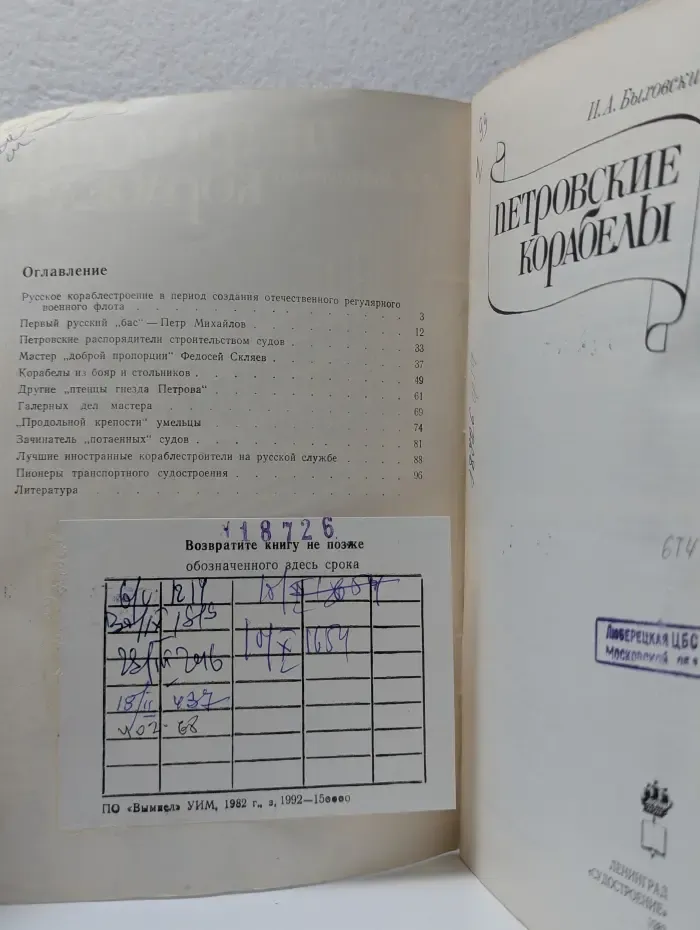 Оглавление
Русское кораблестроение в период создания отечественного регулярного
военного флота . . . . . . . . . . . . 3
Первый русский „бас" — Петр Михайлов . . . . . . 12
Петровские распорядители строительством судов . . . . 33
Мастер „доброй пропорции" Федосей Скляев . . . . . 37
Корабелы из бояр и стольников . . . . . . . . 49
Другие „птенцы гнезда Петрова" . . . . . . . . 61
Галерных дел мастера . . . . . . . . . . 69
„Продольной крепости" умельцы . . . . . . . . 74
Зачинатель „потаенных" судов . . . . . . . . 81
Лучшие иностранные кораблестроители на русской службе . . 88
Пионеры транспортного судостроения . . . . . . . 96
Литература . . . . . . . . . . . .
118726
Возвратите книгу не позже
обозначенного здесь срока
18/II 437
68
10/X 1654
ПО «Вымпел» УИМ, 1982 г., з. 1992—150000
И. А. Быховски
ПЕТРОВСКИЕ
КОРАБЕЛЫ
674
ЛЮБЕРЕЦКАЯ ЦБС
МОСКОВСКОЙ
ЛЕНИНГРАД
«СУДОСТРОЕНИЕ»